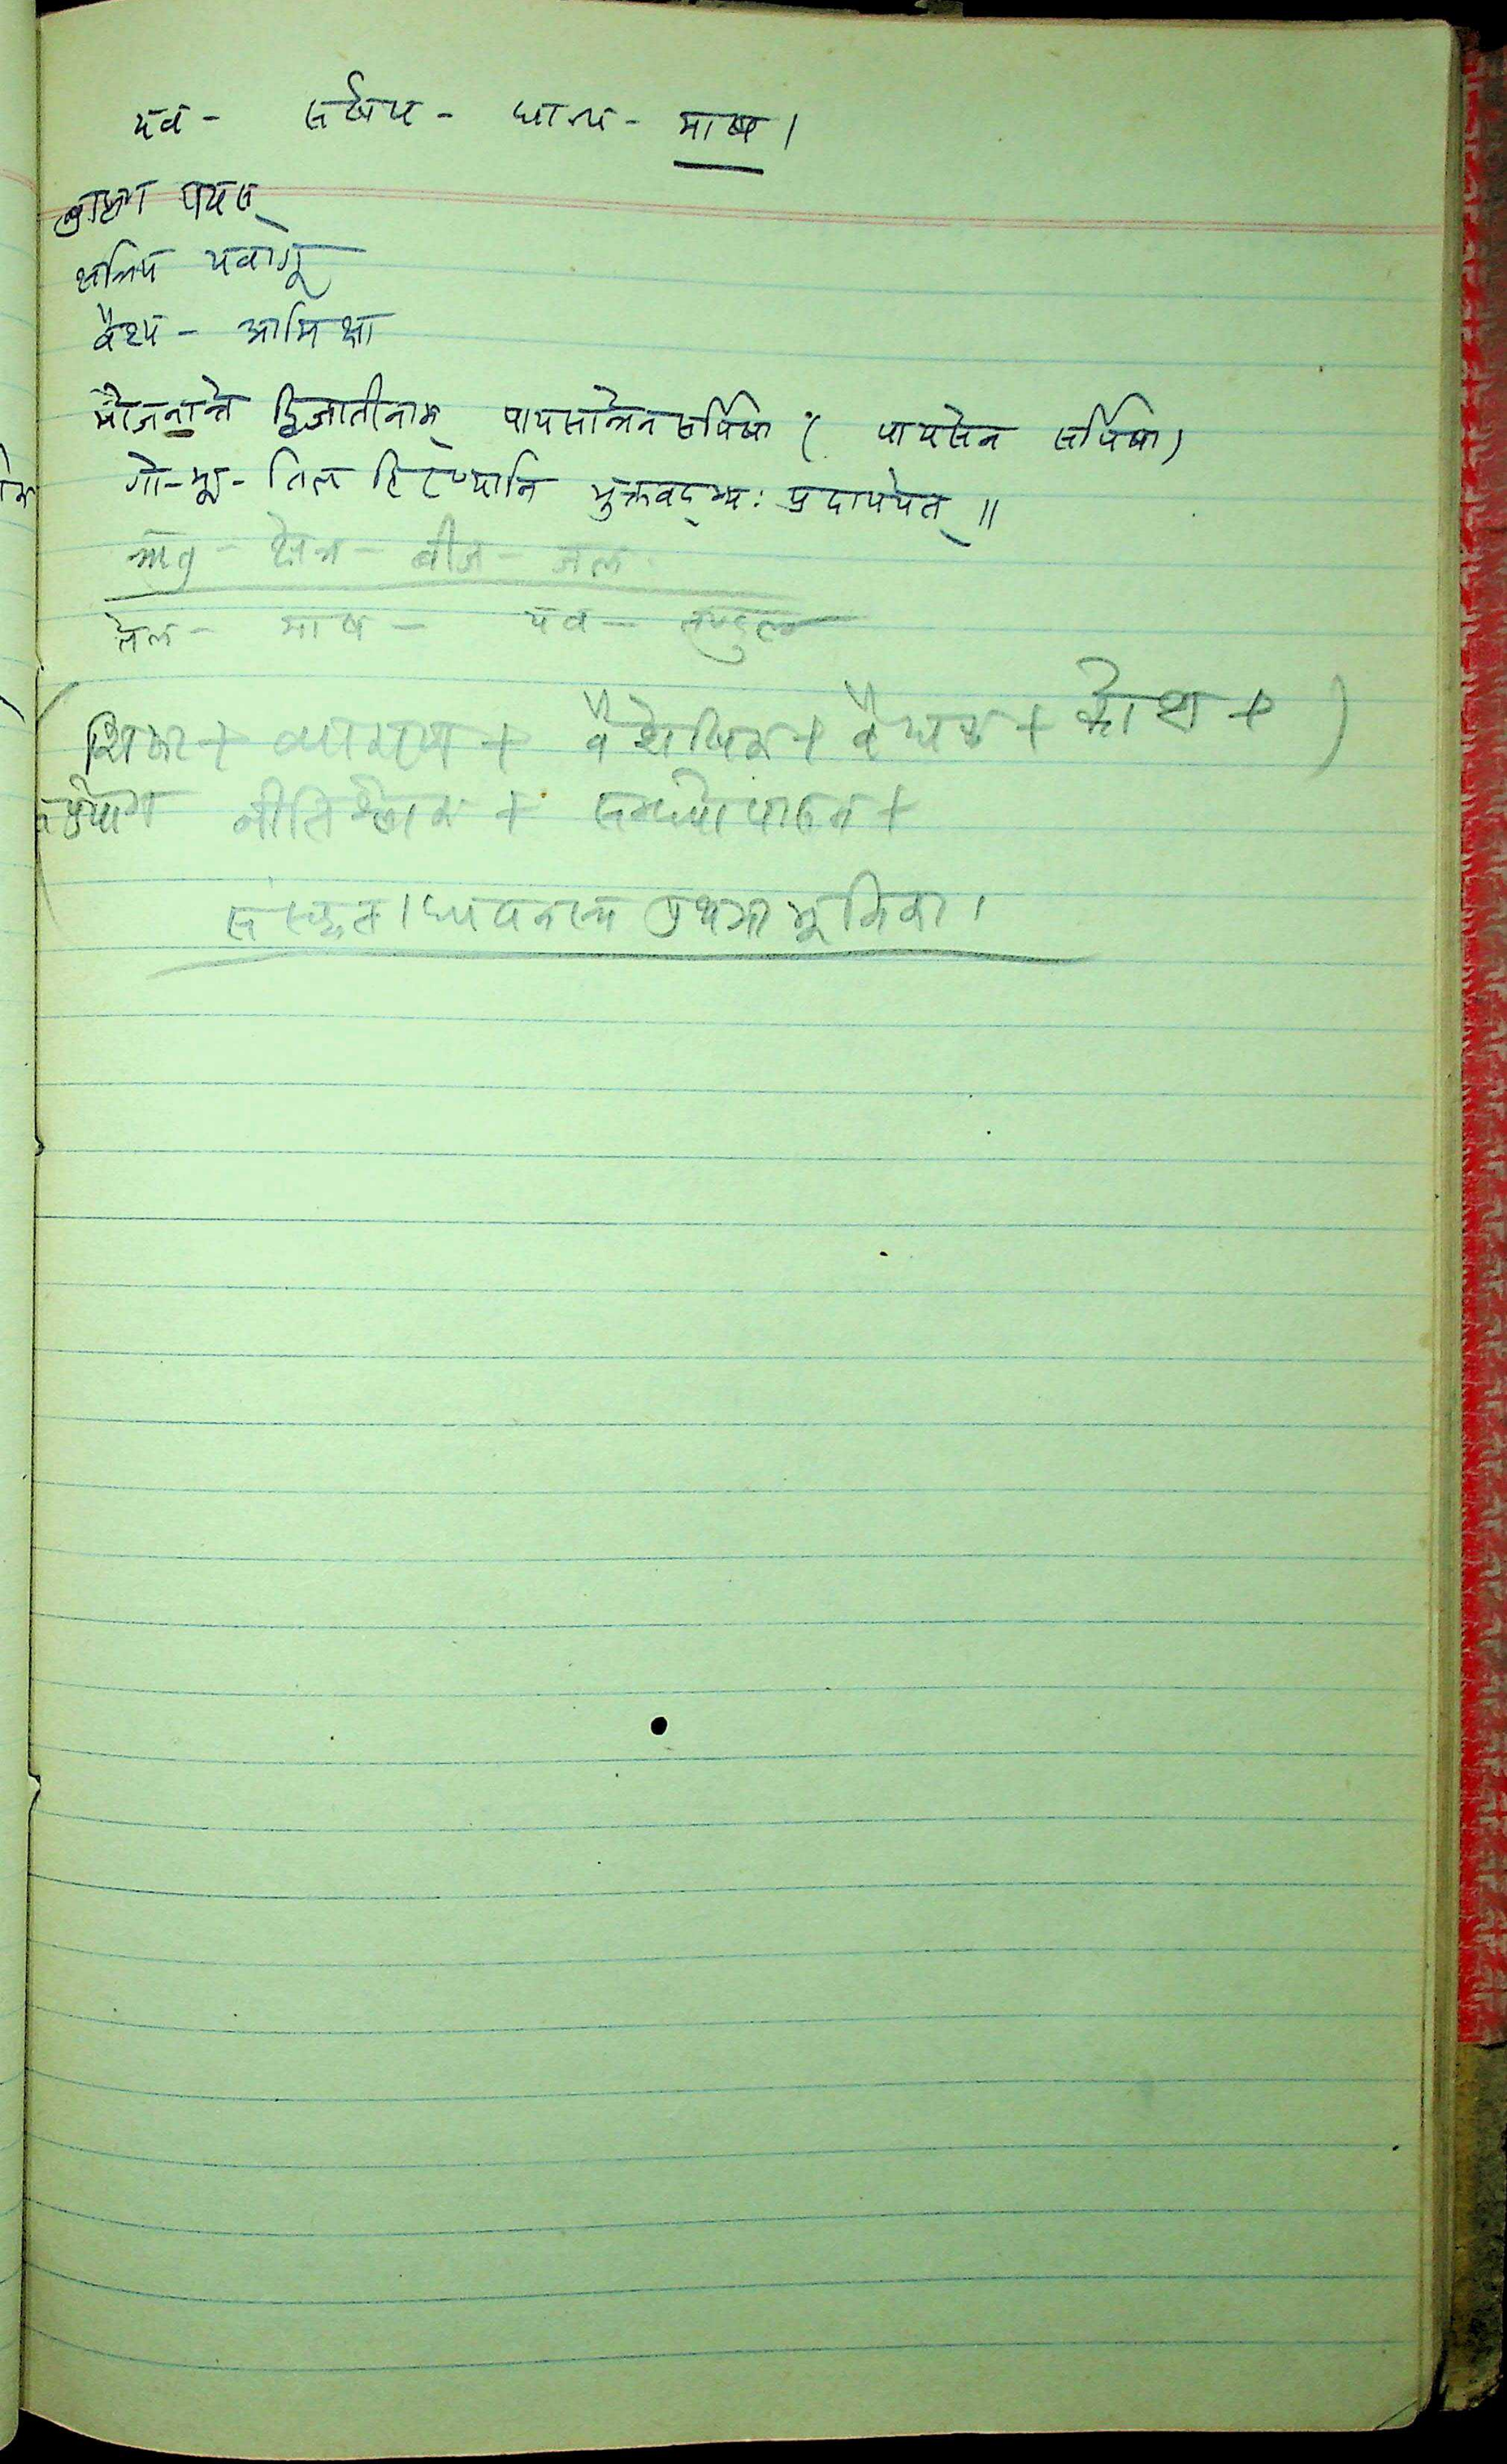 यव - सर्षप - धान्य - माष ।
ब्राह्मण पयस्
क्षत्रिय यवागू
वैश्य - आमिक्षा
भोजनान्ते द्विजातीनाम् पायसान्नेन सर्पिषा ( पायसेन सर्पिषा )
गो-भू-तिल हिरण्यानि भुक्तवद्भ्यः प्रदापयेत् ॥
ऋतु - क्षेत्र - बीज - जल
तिल - माष - यव - तण्डुल
( शिक्षा + व्याकरण + वैशेषिक + वैद्यक + कोश + )
नीति + सन्ध्योपासन +
संस्कृताध्ययनस्य प्रथमा भूमिका ।